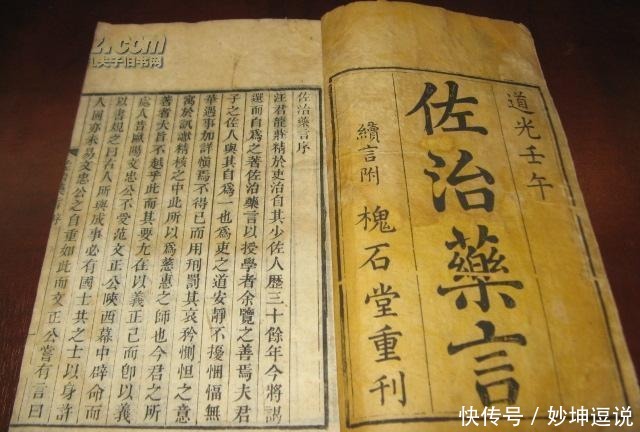 道光壬午
佐治藥言
續言附 槐石堂重刊
佐治藥言序
汪君龍莊精於吏治自其少佐人歷三十餘年今將謁
選而自爲之著佐治藥言以授學者余覽之善焉夫君
子之佐人與其自爲一也爲吏之道安靜不擾悃愊無
華遇事加詳愼焉不得已而用刑罰其哀矜惻怛之意
寓於訊讞精核之中此所以爲慈惠之師也今君之所
著者大旨不越乎此而其要尤在以義正己而卽以義
處人昔歐陽文忠公不受范文正公陝西幕中辟命而
以書規之曰古人所與成事必有國士共之士以身許
人固亦未易文忠公之自重如此而文正公嘗有言曰
.com
夫子旧书网
快传号 / 妙坤逗说